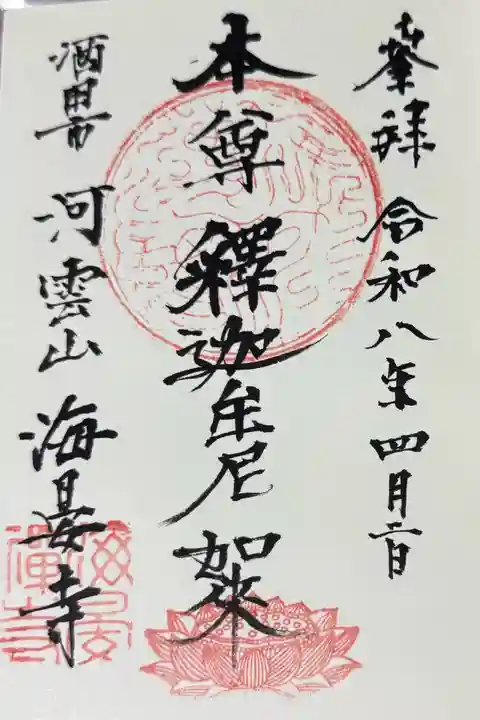 奉拝 令和八年四月二日
本尊 釋迦牟尼如来
酒田市 河雲山 海晏寺
海晏禅寺